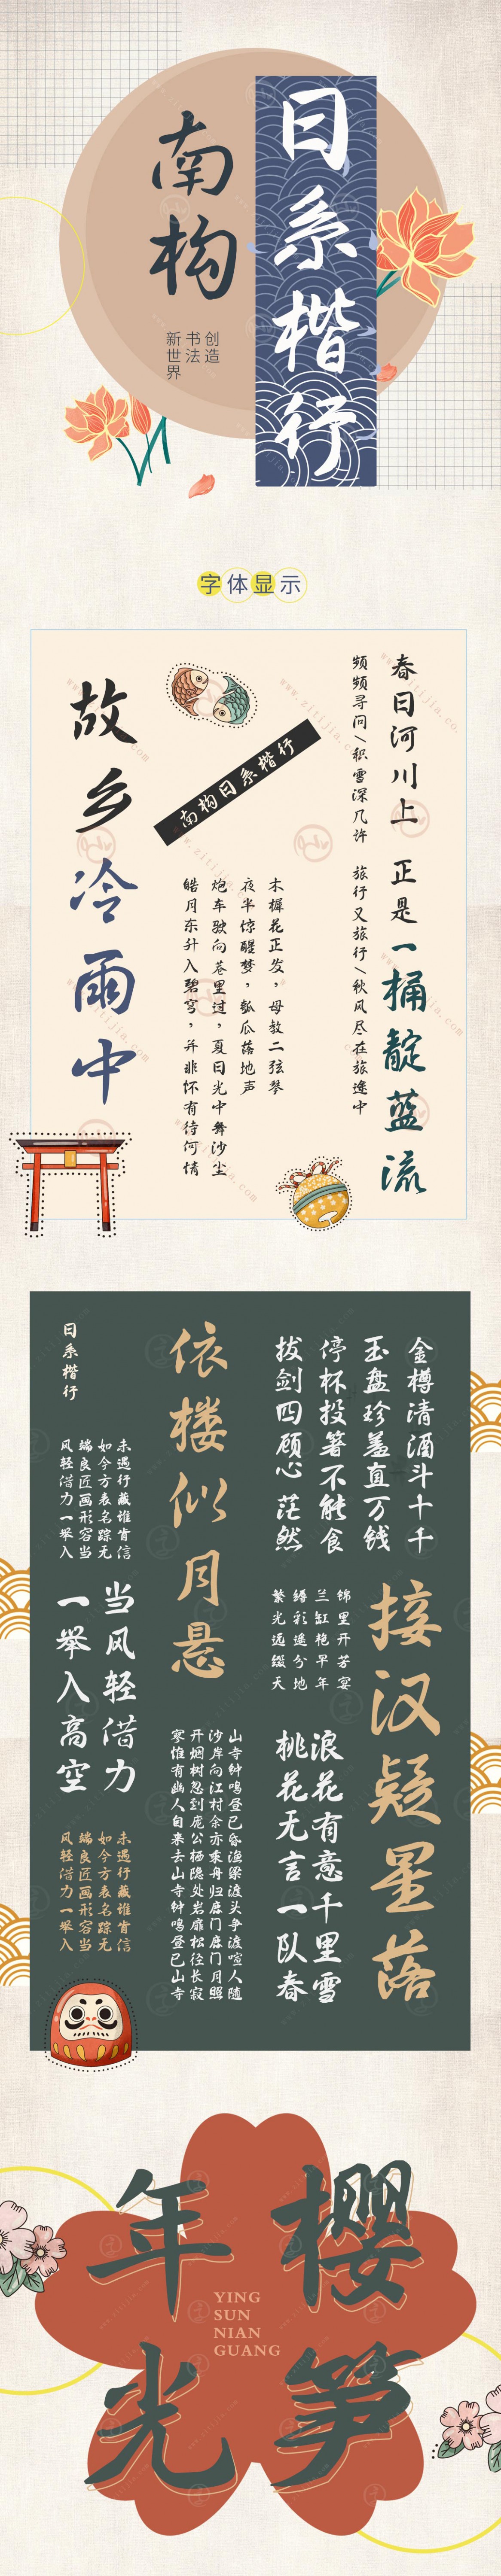 南构
日系楷行
创造
书法
新世界
字体显示
春日河川上 正是一桶靛蓝流
频频寻问/积雪深几许 旅行又旅行/秋风尽在旅途中
南构日系楷行
木樨花正发，母教二弦琴
夜半惊醒梦，瓠瓜落地声
炮车驶向巷里过，夏日光中舞沙尘
皓月东升入碧穹，并非怀有待何情
故乡冷雨中
金樽清酒斗十千
玉盘珍羞直万钱
停杯投箸不能食
拔剑四顾心茫然
接汉疑星落
依楼似月悬
日系楷行
锦里开芳宴
兰缸艳早年
缛彩遥分地
繁光远缀天
未遇行藏谁肯信
如今方表名踪无
端良匠画形容当
风轻借力一举入
当风轻借力
一举入高空
浪花有意千里雪
桃花无言一队春
山寺钟鸣昼已昏渔梁渡头争渡喧人随
沙岸向江村余亦乘舟归鹿门鹿门月照
开烟树忽到庞公栖隐处岩扉松径长寂
寥惟有幽人自来去山寺钟鸣昼已山寺
未遇行藏谁肯信
如今方表名踪无
端良匠画形容当
风轻借力一举入
樱笋
年光
YING
SUN
NIAN
GUANG